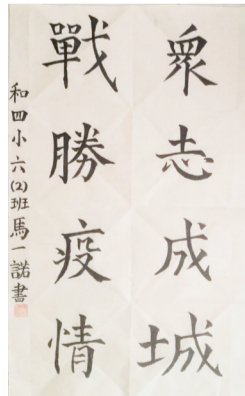 衆志成城
戰勝疫情
和四小六(2)班馬一諾書